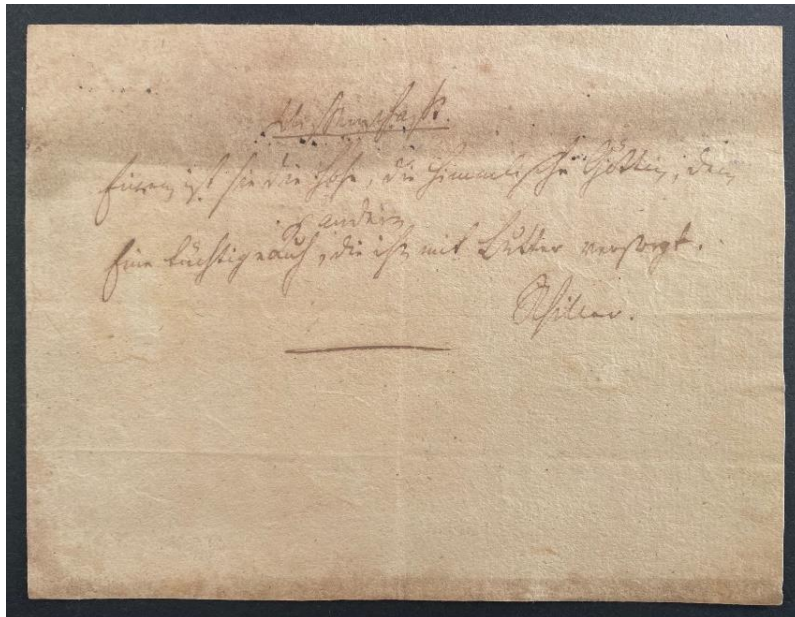 Wissenschaft.
Einem ist sie die hohe, die himmlische Göttin, dem
andern
Eine tüchtige Kuh, die ihn mit Butter versorgt.
Schiller.